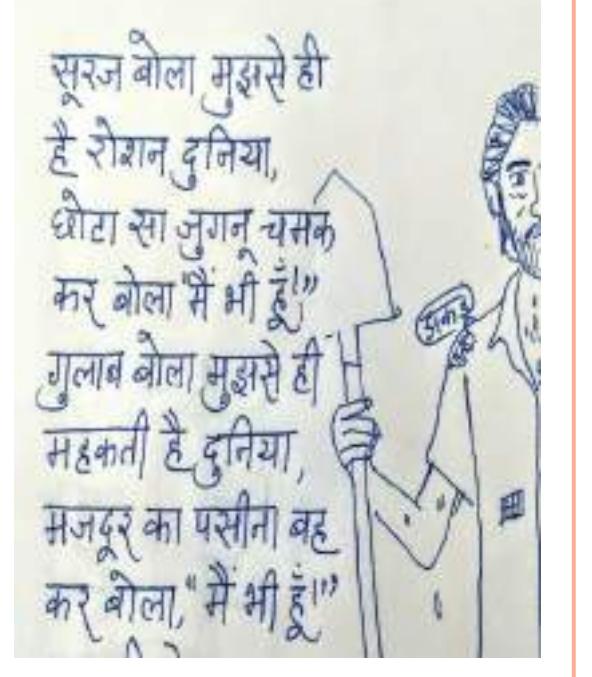 सूरज बोला मुझसे ही
है रोशन दुनिया,
छोटा सा जुगनू चमक
कर बोला "मैं भी हूँ!"
गुलाब बोला मुझसे ही
महकती है दुनिया,
मजदूर का पसीना बह
कर बोला, "मैं भी हूँ!"